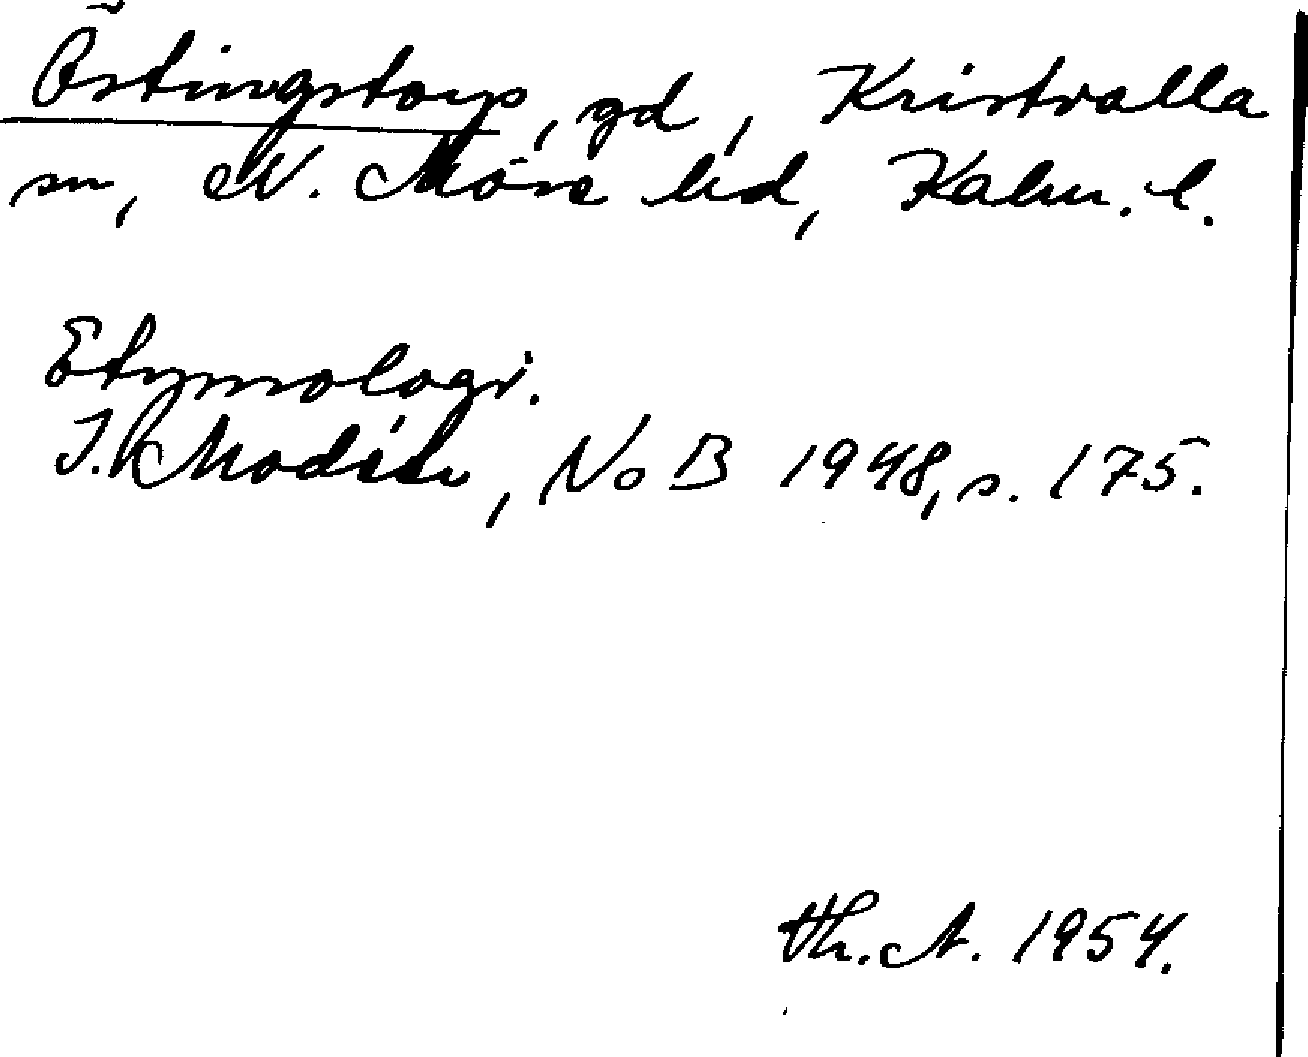 Östingstorp, gd, Kristvalla
sn, N. Möre hd, Kalm. l.
Etymologi.
I. Modéer, NoB 1948, s. 175.
th. A. 1954.